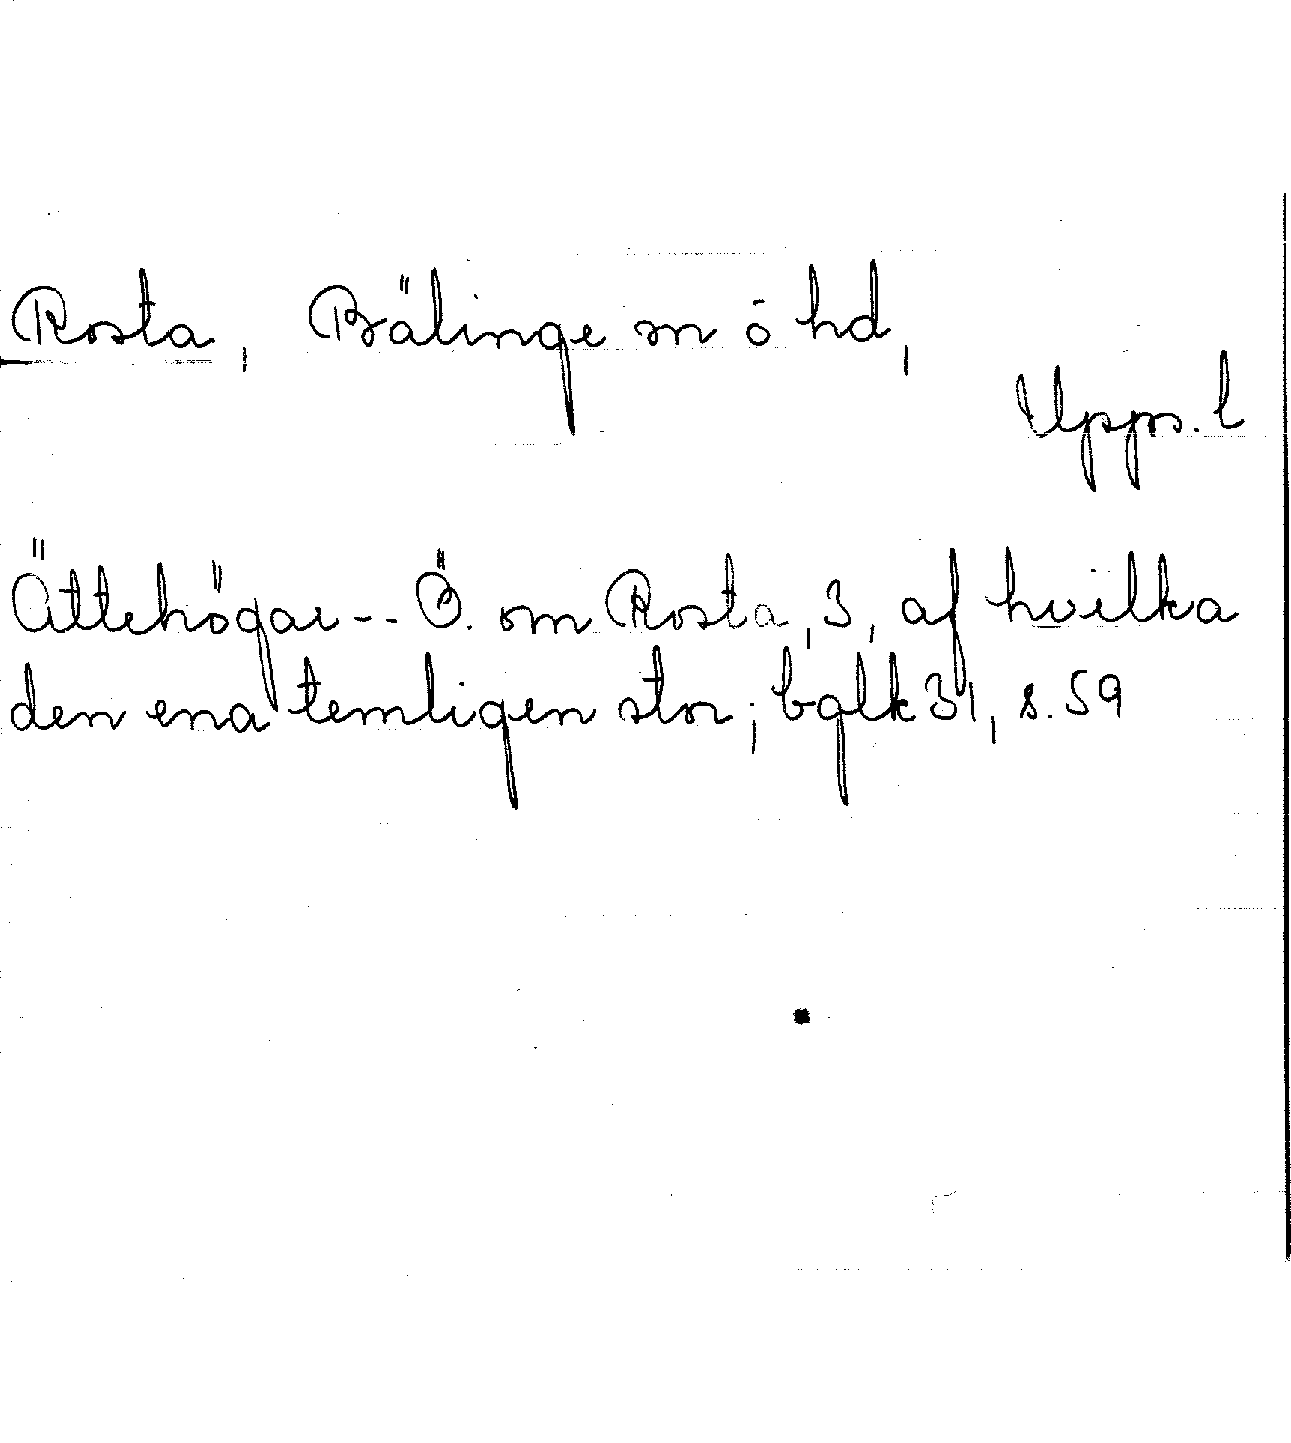 Rosta, Bälinge sn ö hd,
Upps. l
Ättehögar -- Ö. om Rosta, 3, af hvilka
den ena temligen stor; bglk 31, s. 59